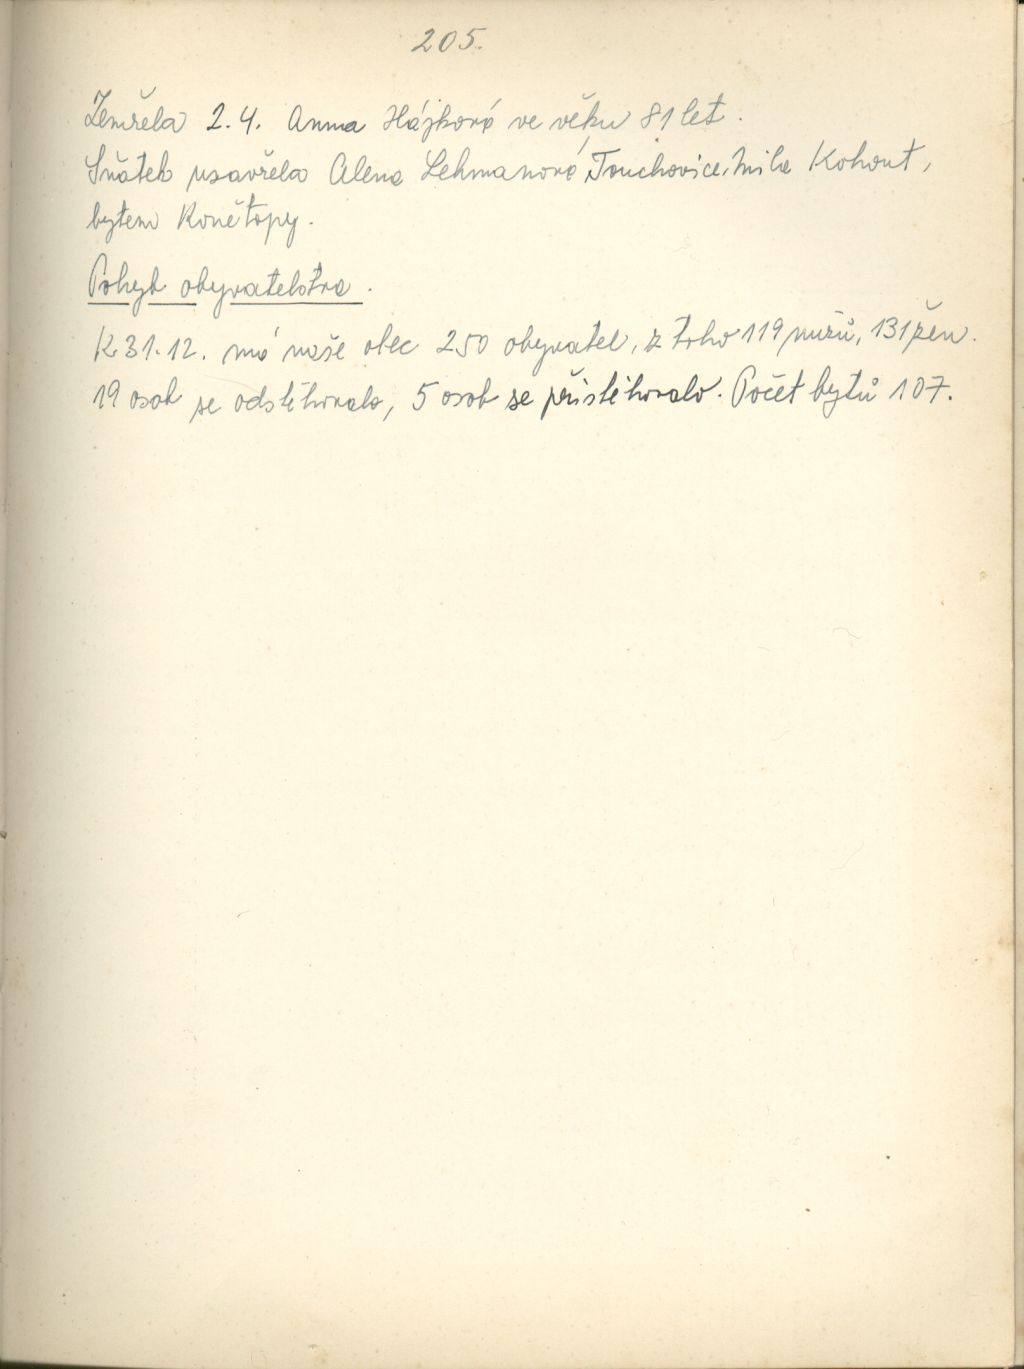 205.
Zemřela 2.4. Anna Hájková ve věku 81 let.
Sňatek uzavřela Alena Lehmanová, Touchovice, Míla Kohout,
bytem Konětopy.
Pohyb obyvatelstva.
K 31.12. má naše obec 250 obyvatel, z toho 119 mužů, 131 žen.
19 osob se odstěhovalo, 5 osob se přistěhovalo. Počet bytů 107.